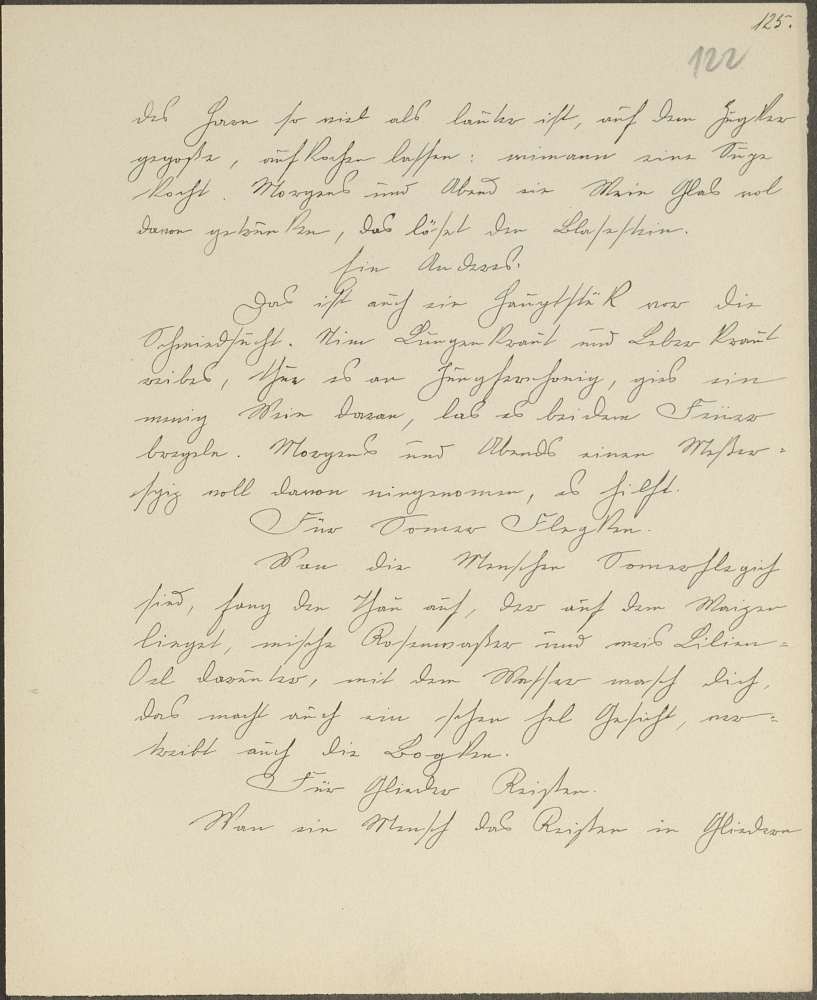 125.
122
des Harn so viel als lauter ist, auf dem Zugker
gegoße, aufkochen lassen: wimann eine Supe
kocht. Morgens und Abend ein Wein Glas vol
davon getrunken, das löset den Blasestein.
Ein Anderes.
Das ist auch ein Hauptstük vor die
Schwiedsucht. Nim Lungenkraut und Leberkraut
reibes, thue es an Jungfernhonig, gies ein
wenig Wein daran, las es bei dem Feuer
bregeln. Morgens und Abends einen Meßer=
spiz voll davon eingenomen, es hilft.
Für Somer Flegken.
Wan die Menschen Somerflegich
sind, fang den Thau auf, der auf dem Waizen
lieget, mische Rosenwaßer und weis Lilien=
Oel darunter, mit dem Wasser wasch dich,
das macht auch ein schen hel Gesicht, ver=
treibt auch die Bogken.
Für Glieder Reisten.
Wan ein Mensch das Reisten in Gliedern